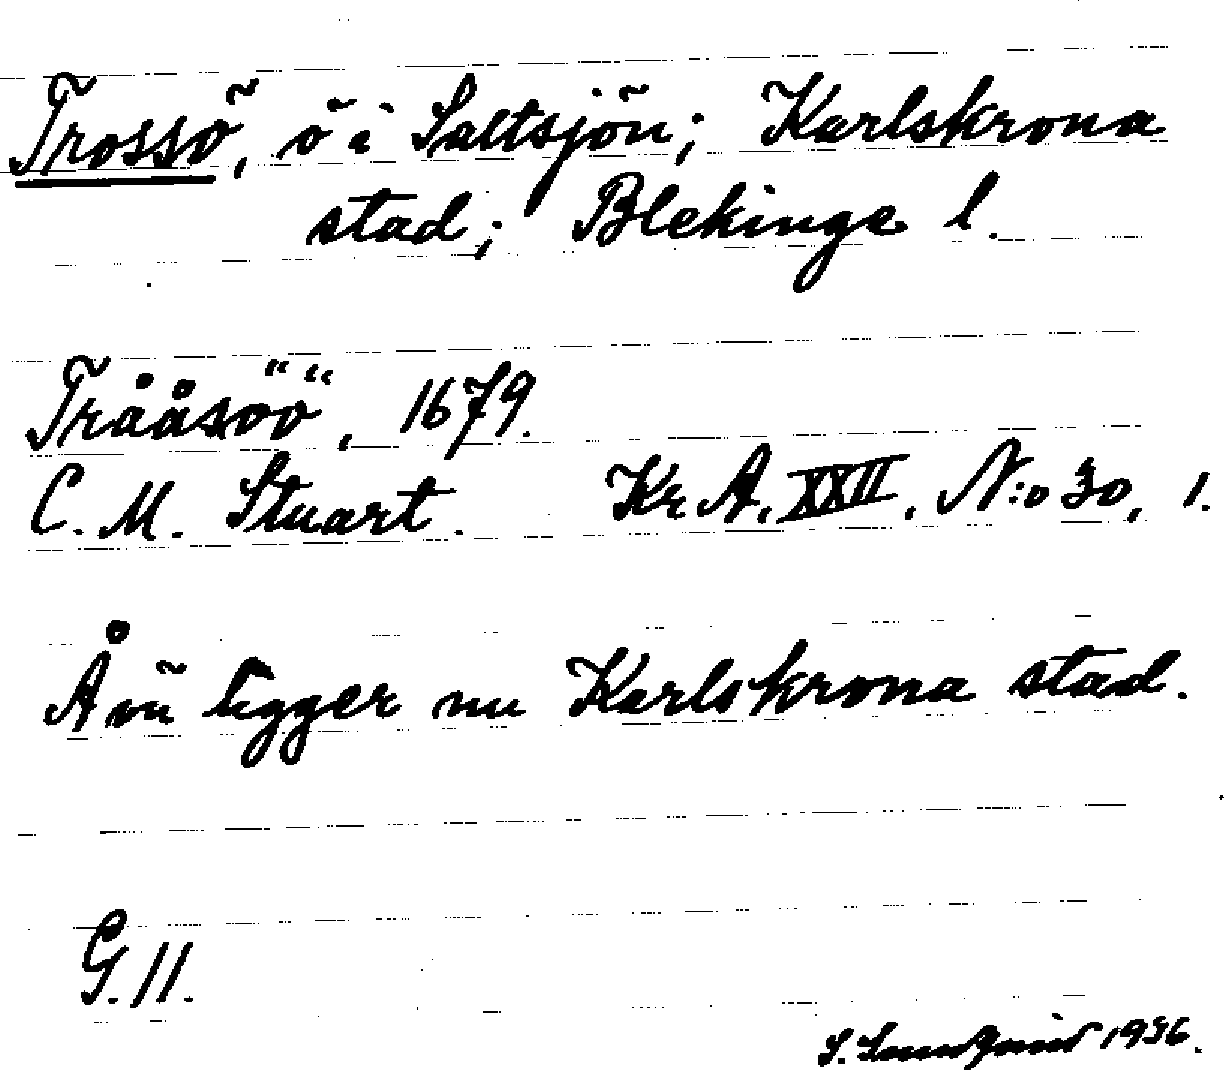 Trossö, ö i Saltsjön; Karlskrona
stad; Blekinge l.
Trååsöö, 1679.
C. M. Stuart. Kr A. XXII. N:o 30, 1.
Å ön ligger nu Karlskrona stad.
G. 11.
S. 1936.